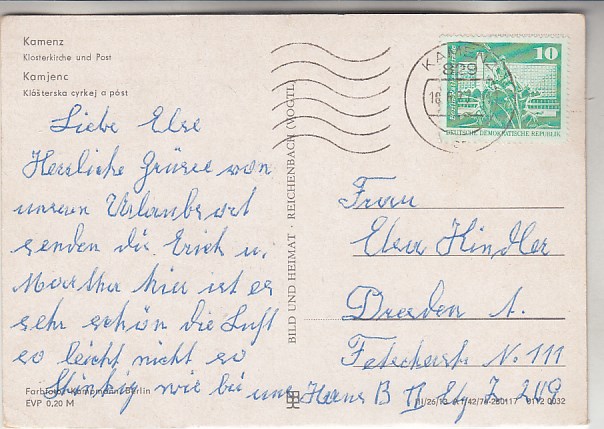 Kamenz
Klosterkirche und Post
Kamjenc
Klóšterska cyrkej a póst
Liebe Else
Herzliche Grüsse von
unseren Urlaubsort
senden dir Erich u.
Martha hier ist es
sehr schön die Luft
so leicht nicht so
Stinkig wie bei uns
Farbfoto: Kampmann, Berlin
EVP 0,20 M
BILD UND HEIMAT · REICHENBACH (VOGTL)
KAMENZ
829
10
DEUTSCHE DEMOKRATISCHE REPUBLIK
Frau
Elsa Hindler
Dresden A.
Fetscherstr No 111
Haus B II Z 209
III/26/13 A1/42/74 280117 01 12 0032